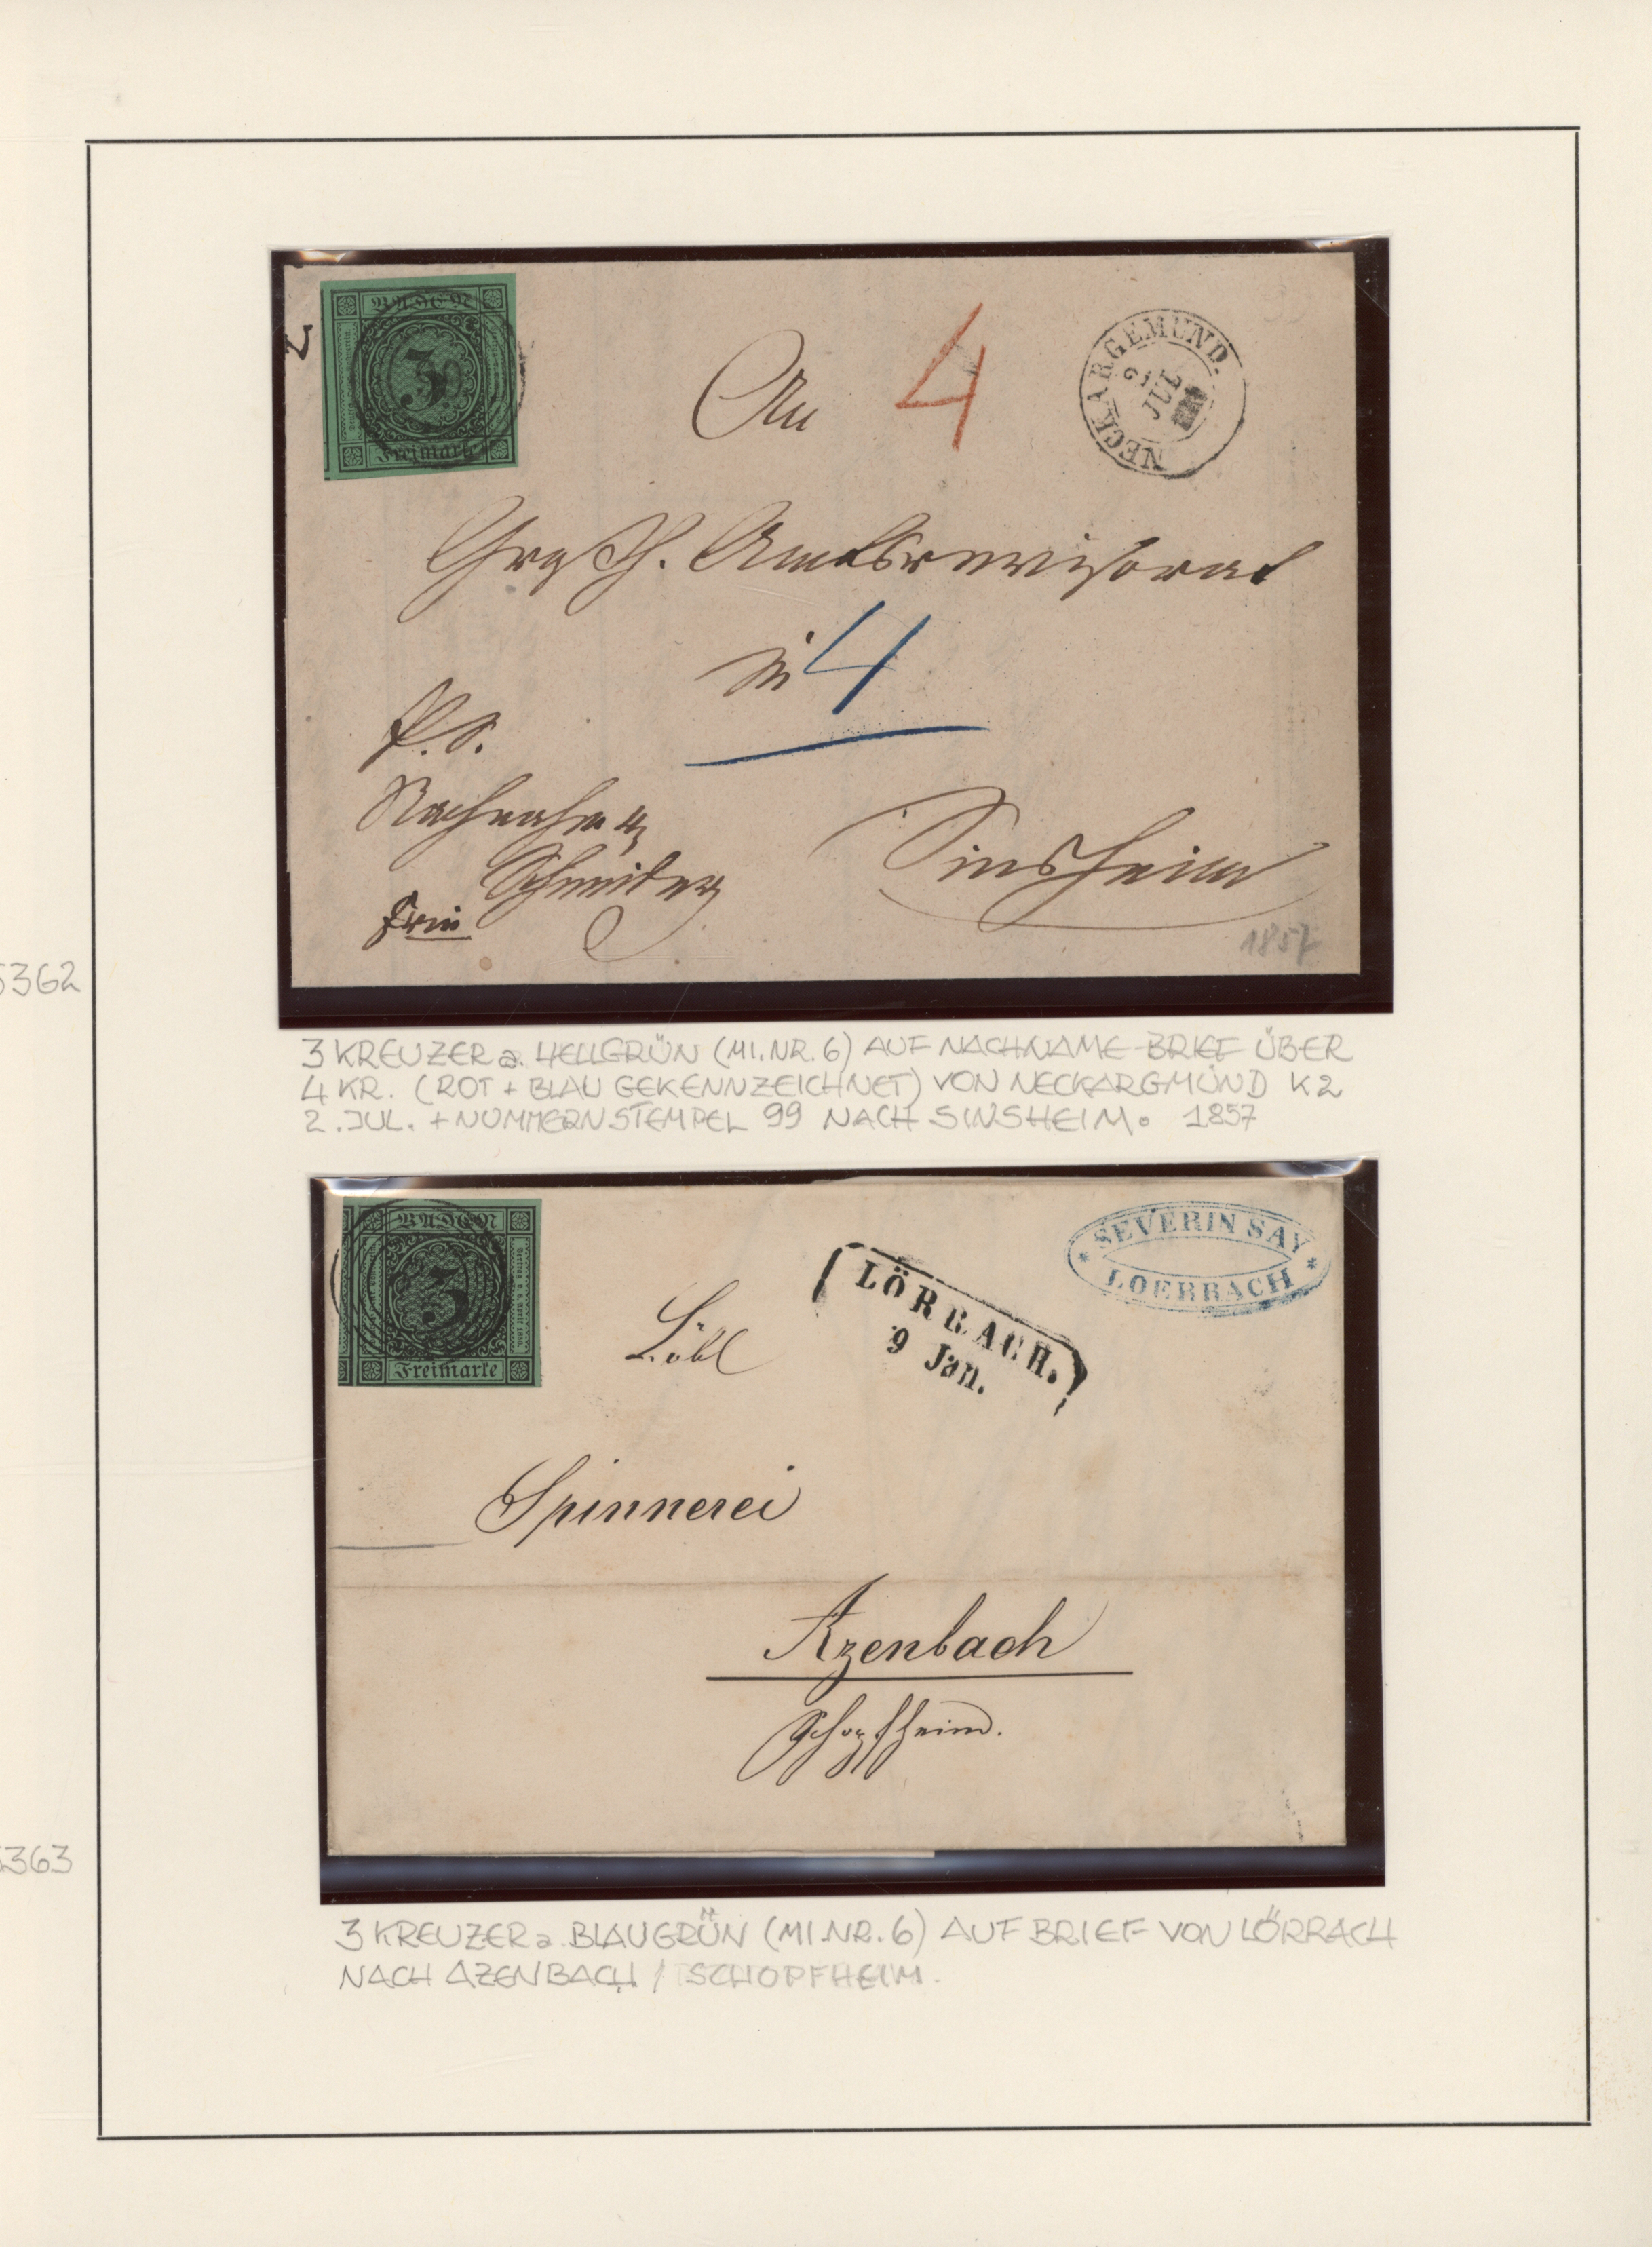 BADEN
3
Freimarke
An
4
NECKARGEMÜND.
JUL
Großh. Amtsrevisorat
in
4
P.S.
Nachnahme 4
Sinsheim
1857
5362
3 KREUZER a. HELLGRÜN (MI.NR.6) AUF NACHNAME-BRIEF ÜBER
4 KR. (ROT + BLAU GEKENNZEICHNET) VON NECKARGMÜND K2
2. JUL. + NUMMERNSTEMPEL 99 NACH SINSHEIM. 1857
BADEN
3
Freimarke
SEVERIN SAY
LOERRACH
LÖRRACH.
9 Jan.
Löbl
Spinnerei
Azenbach
Schopfheim.
363
3 KREUZER a. BLAUGRÜN (MI.NR.6) AUF BRIEF VON LÖRRACH
NACH AZENBACH / SCHOPFHEIM.